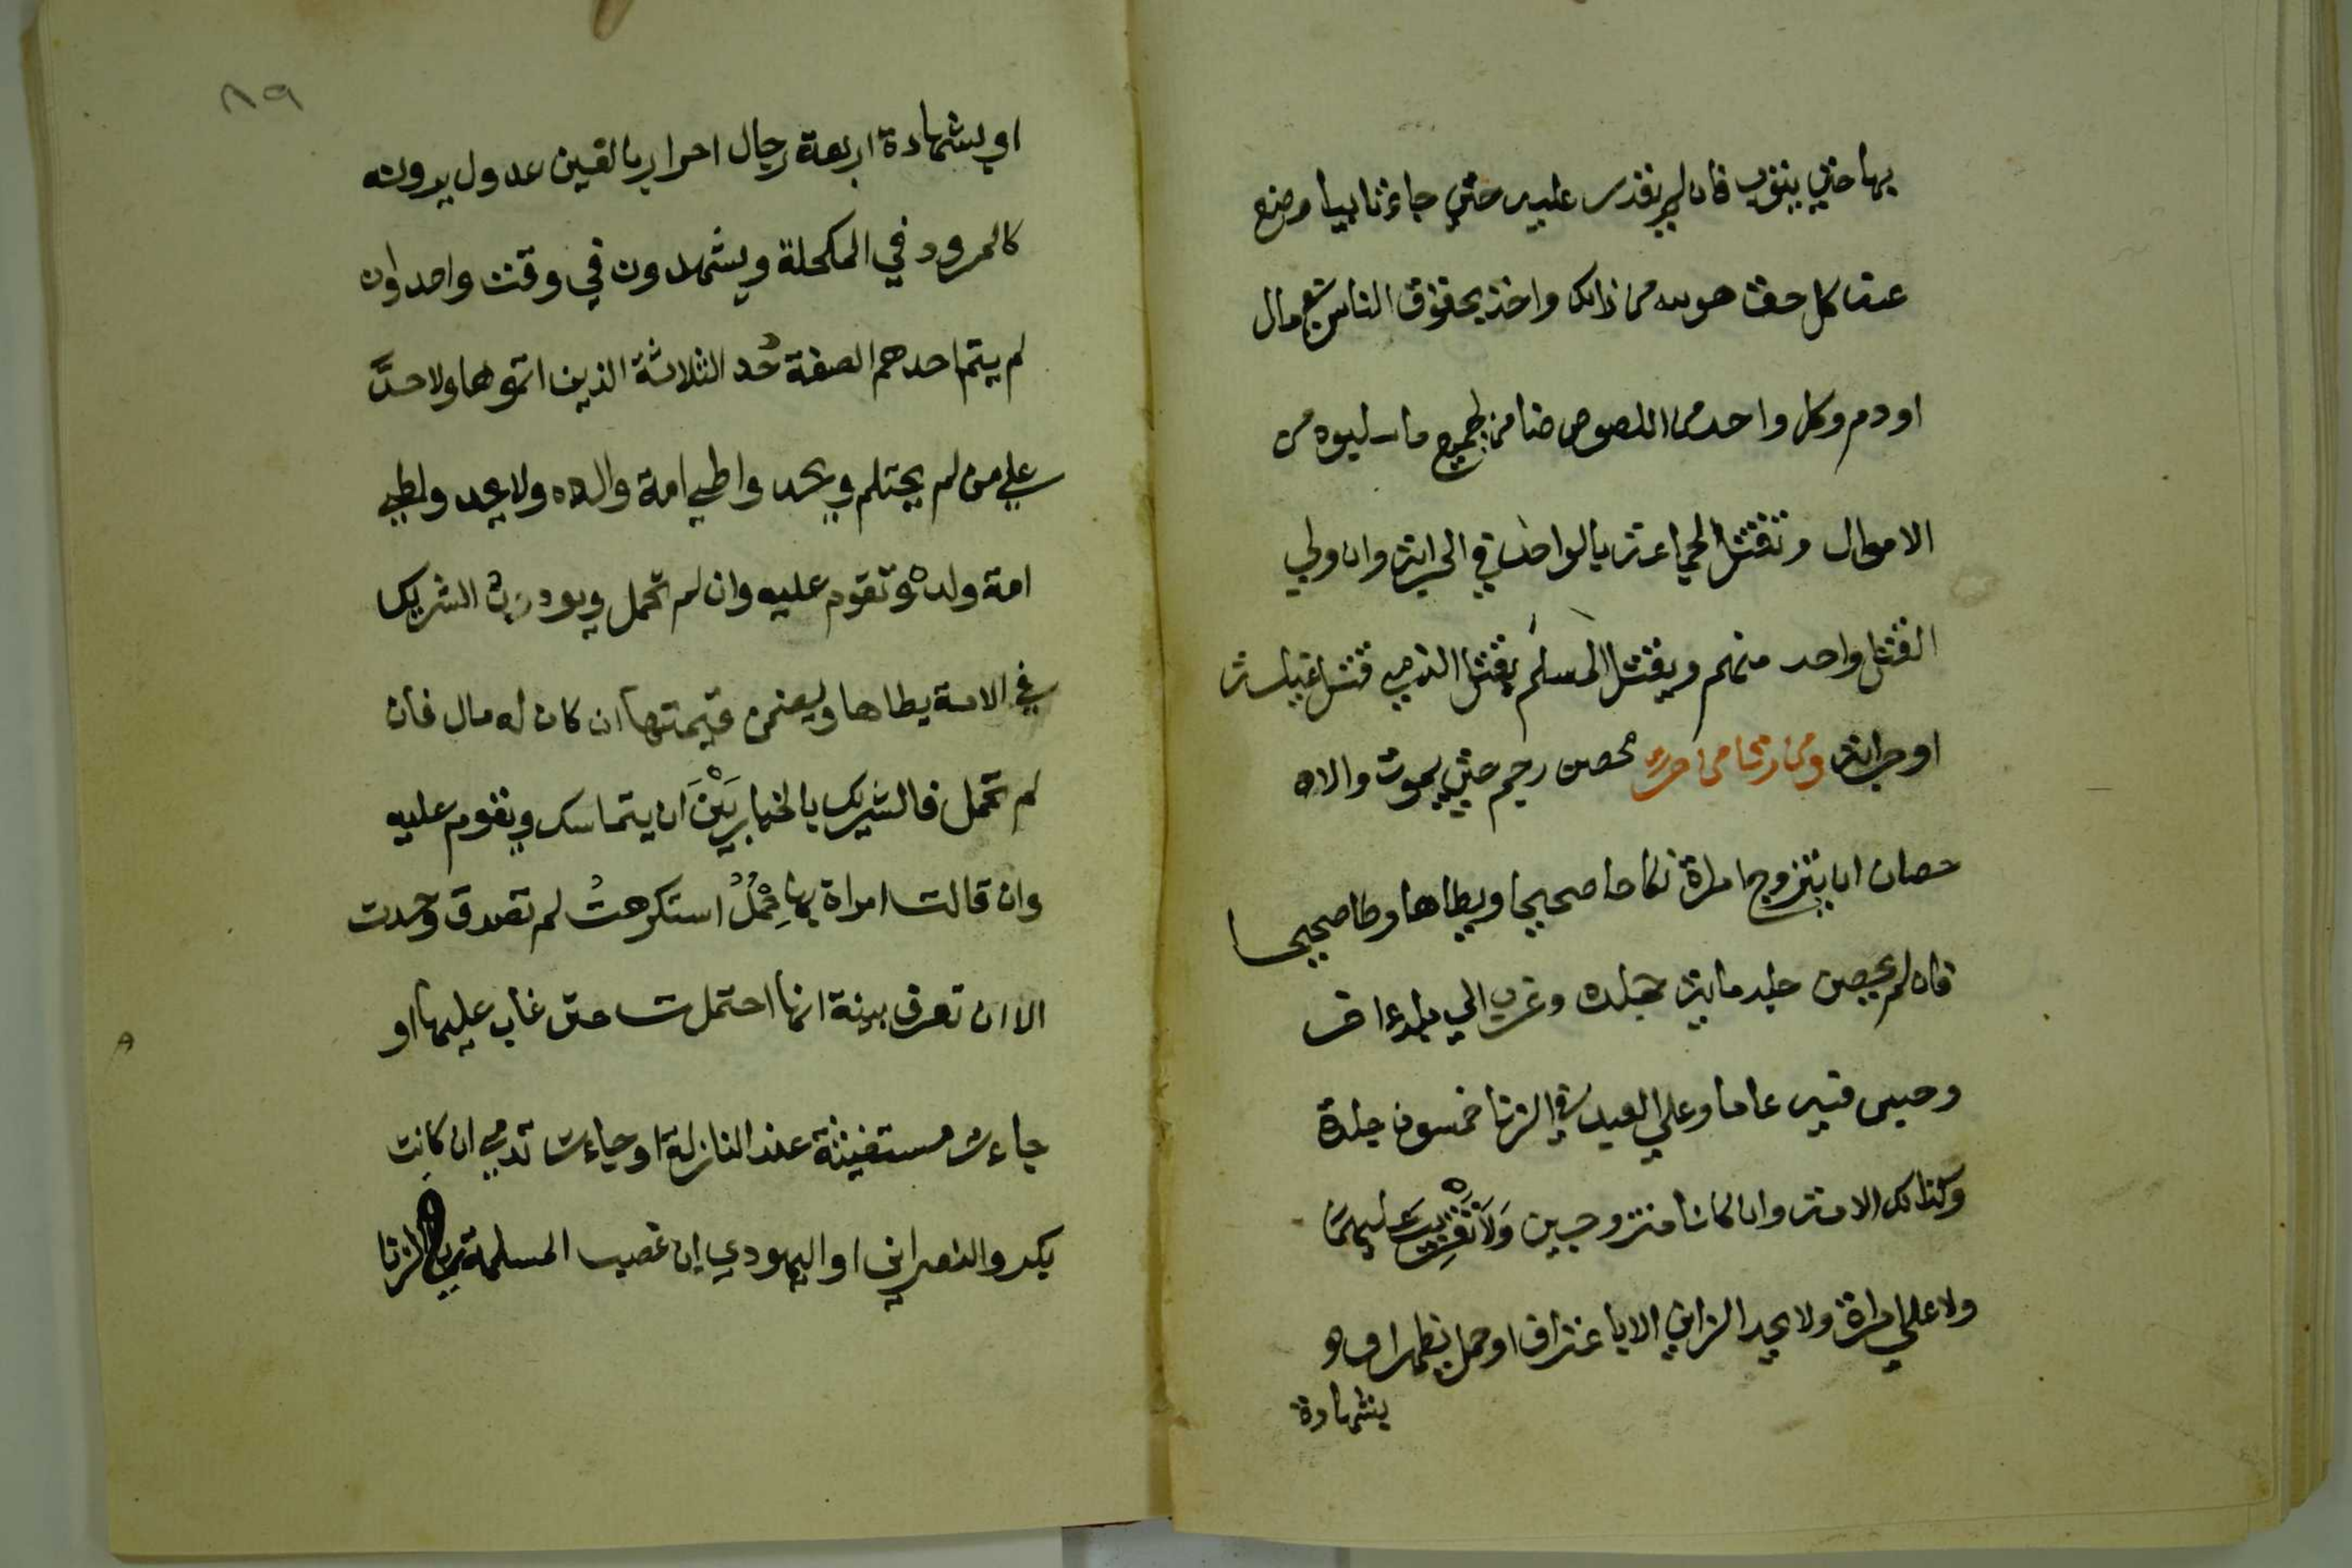 بها حتى يتوب فان لم يقدر عليه حتى جاء تايبا وضع
عنه كل حق هو لله من ذالك واخذ بحقوق الناس من مال
اودم وكل واحد من اللصوص ضامن لجميع ما سلبوه من
الاموال وتقتل الجماعة بالواحد في الحرابة وان ولي
القتل واحد منهم ويقتل المسلم بقتل الذمي قتل غيلة
او حرابة ومن زنا من حر محصن رجم حتى يموت والا
حصان ان يتزوج امراة نكاحا صحيحا ويطاها وطا صحيحا
فان لم يحصن جلد ماية جلدة وغرب الي بلد اخر
وحبس فيه عاما وعلي العبد في الزنا خمسون جلدة
وكذالك الامة وان كانا متزوجين ولا تغريب عليهما
ولا علي امراة ولا يحد الزاني الا باعتراف او حمل يظهر او
بشهادة
٨٩
او بشهادة اربعة رجال احرار بالغين عدول يرونه
كالمرود في المكحلة ويشهدون في وقت واحد وان
لم يتم احدهم الصفة حُد الثلاثة الذين اتموها ولا حدَّ
علي من لم يحتلم ويحد واطي امة والده ولا يحد واطي
امة ولده وتقوم عليه وان لم تحمل ويودب الشريك
في الامة يطاها ويضمن قيمتها ان كان له مال فان
لم تحمل فالشريك بالخيار بَيْنَ ان يتماسك وتقوم عليه
وان قالت امراة بها حَمْلٌ استكرهتُ لم تصدق وحدت
الا ان تعرف بينة انها احتملت حتى غاب عليها او
جاءت مستغيثة عند النازلة او جاءت تدمي ان كانت
بكر والنصراني او اليهودي ان غصب المسلمة في الزنا